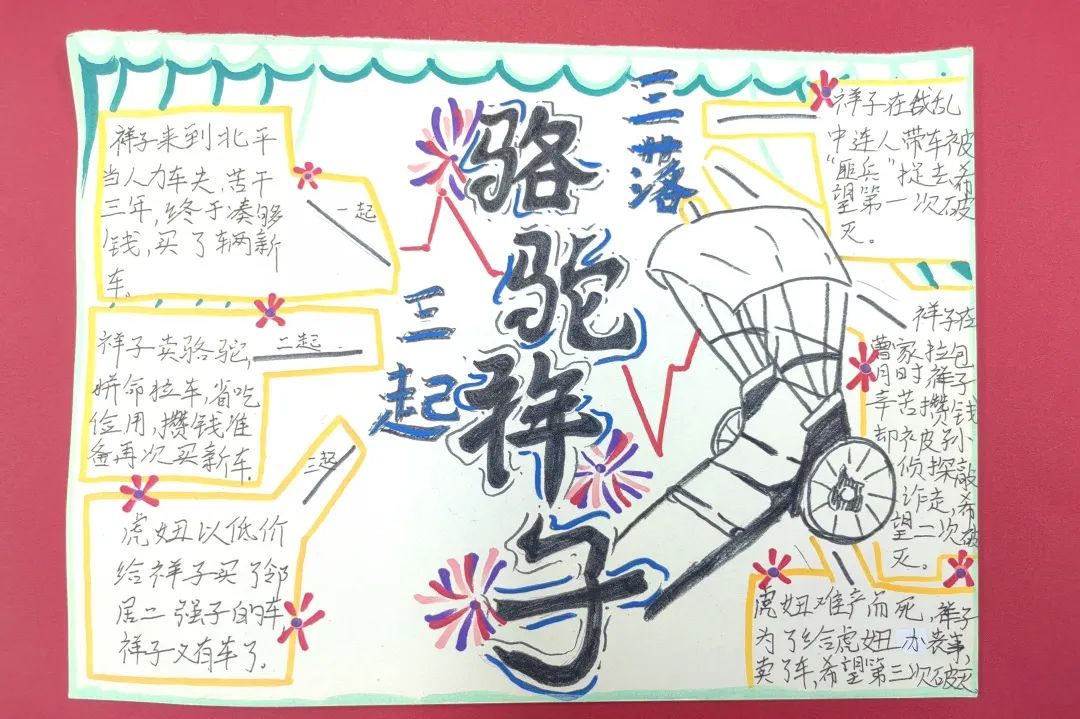 骆驼祥子
三起
三落
祥子来到北平
当人力车夫,苦干
三年,终于凑够
钱,买了辆新
车。
一起
祥子卖骆驼,
拼命拉车,省吃
俭用,攒钱准
备再次买新车.
二起
虎妞以低价
给祥子买了邻
居二强子的车,
祥子又有车了.
三起
祥子在战乱
中连人带车被
“匪兵”捉去,希
望第一次破
灭。
祥子在
曹家拉包
月时祥子
辛苦攒钱
却被孙
侦探敲
诈走,希
望二次破
灭。
虎妞难产而死,祥子
为了给虎妞办丧事,
卖了车,希望第三次破灭